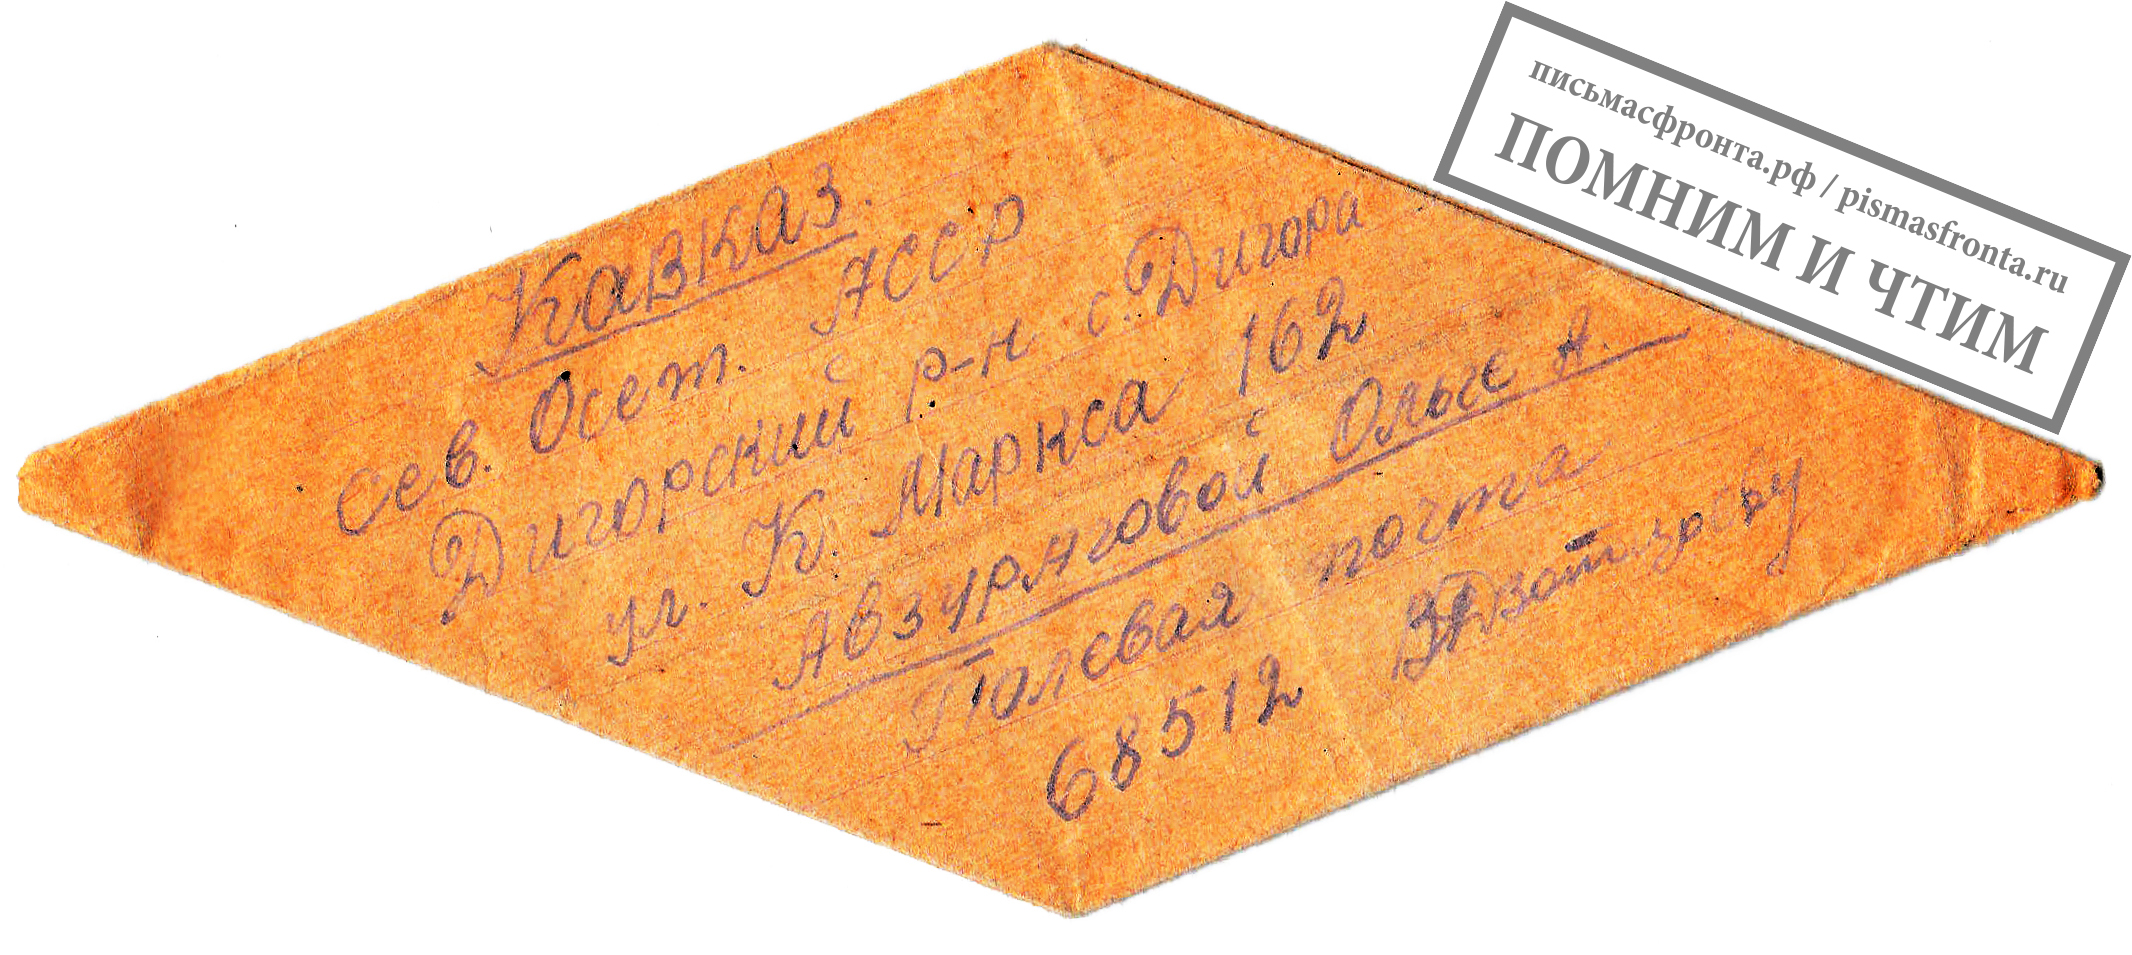 Кавказ.
Сев. Осет. АССР
Дигорский р-н с. Дигора
ул. К. Маркса 162
Авзураговой Ользе А.
Полевая почта
68512
письмасфронта.рф / pismasfronta.ru
ПОМНИМ И ЧТИМ